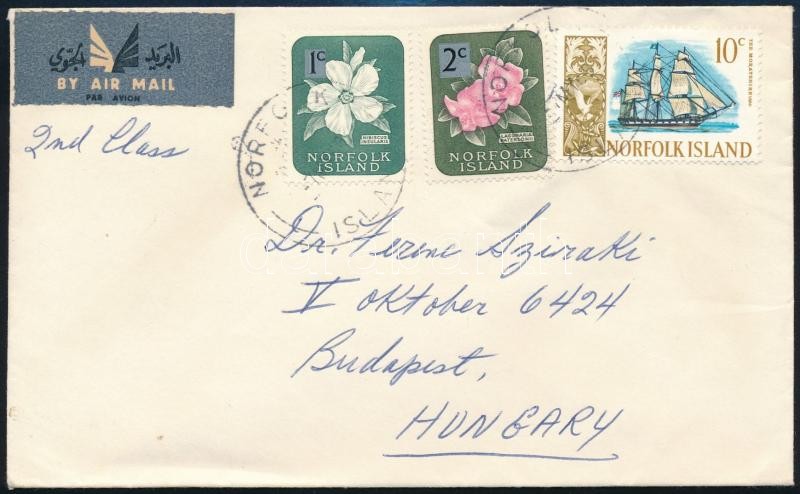 البريد الجوي
BY AIR MAIL
PAR AVION
2nd Class
1c
HIBISCUS INSULARIS
NORFOLK
ISLAND
2c
LAGUNARIA
NORFOLK
ISLAND
10c
NORFOLK ISLAND
NORFOLK ISLA
Dr. Ferenc Sziraki
V Oktober 6424
Budapest,
HUNGARY